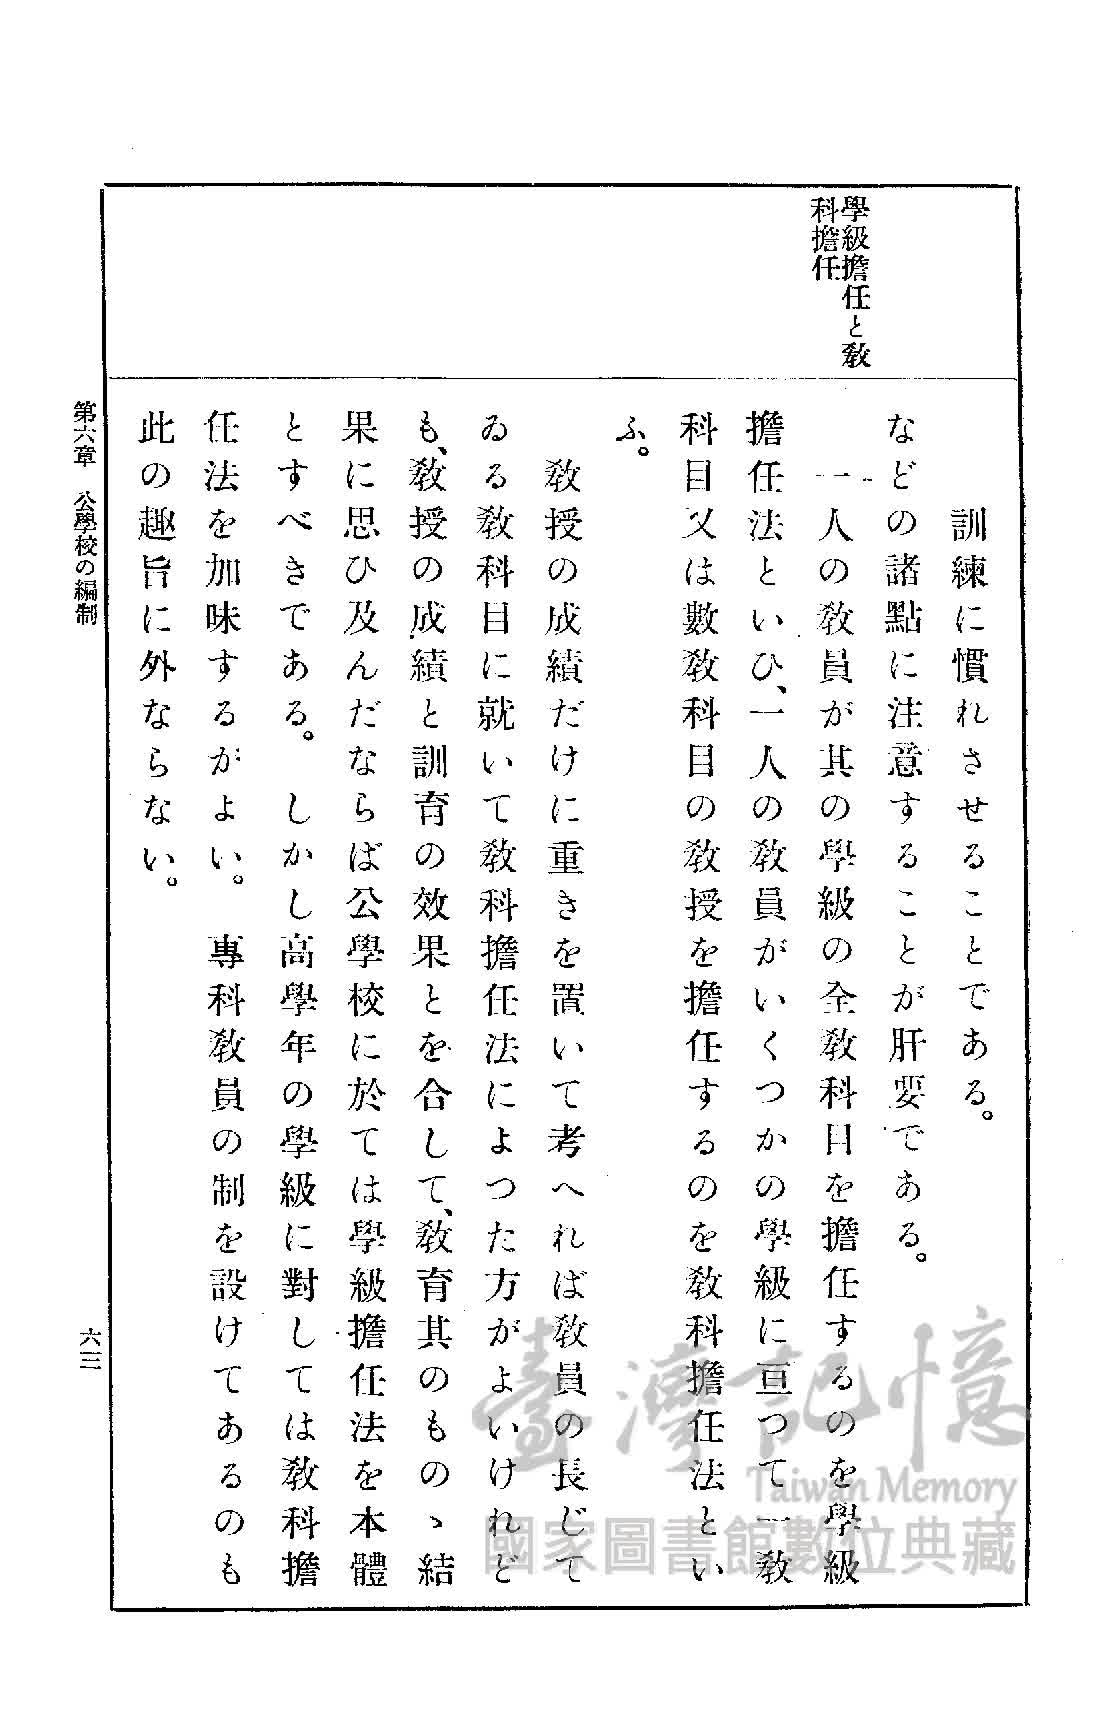 學級擔任と敎
科擔任
訓練に慣れさせることである。
などの諸點に注意することが肝要である。
一人の敎員が其の學級の全敎科目を擔任するのを學級
擔任法といひ、一人の敎員がいくつかの學級に亘つて一敎
科目又は數敎科目の敎授を擔任するのを敎科擔任法とい
ふ。
敎授の成績だけに重きを置いて考へれば敎員の長じて
ゐる敎科目に就いて敎科擔任法によつた方がよいけれど
も、敎授の成績と訓育の效果とを合して、敎育其のものゝ結
果に思ひ及んだならば公學校に於ては學級擔任法を本體
とすべきである。しかし高學年の學級に對しては敎科擔
任法を加味するがよい。專科敎員の制を設けてあるのも
此の趣旨に外ならない。
第六章 公學校の編制
六三
臺灣記憶
Taiwan Memory
國家圖書館數位典藏